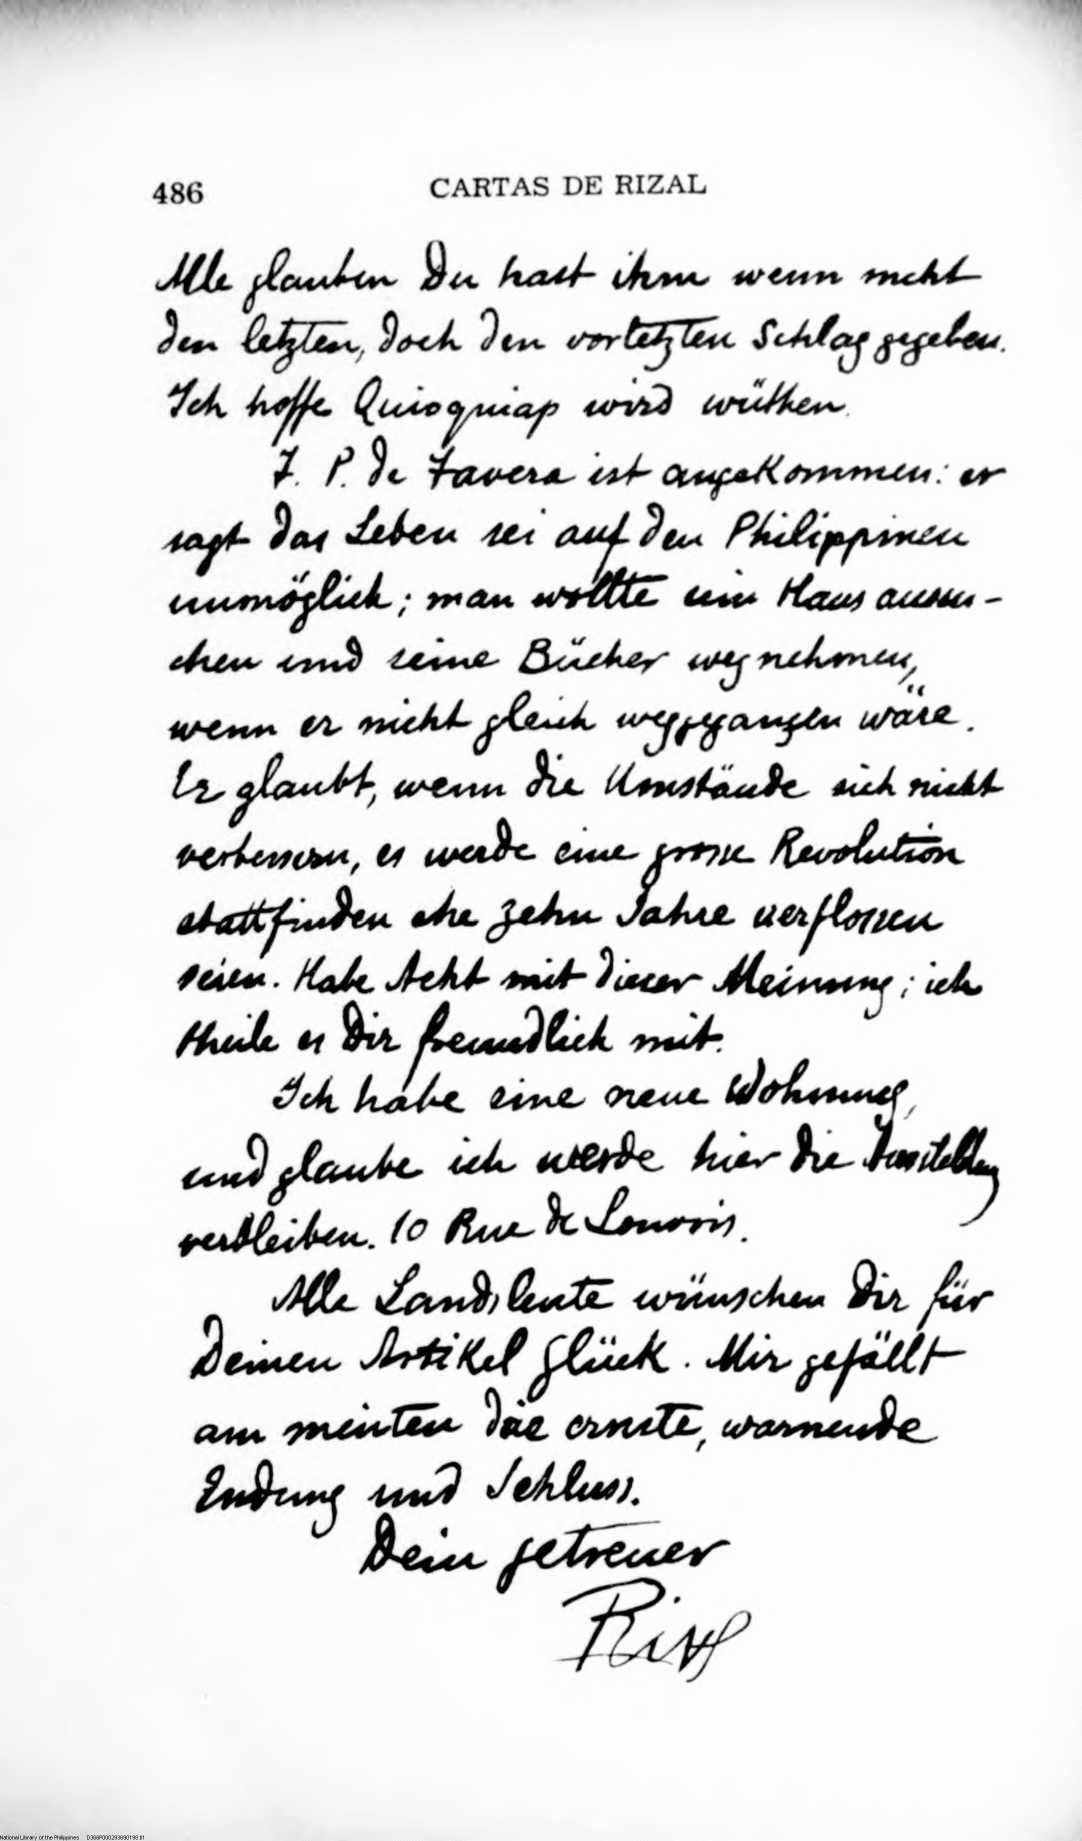 486 CARTAS DE RIZAL
Alle glauben Du hast ihm wenn nicht
den letzten, doch den vorletzten Schlag gegeben.
Ich hoffe Quioquiap wird wüthen.
T. P. de Tavera ist angekommen: er
sagt das Leben sei auf den Philippinen
unmöglich; man wollte sein Haus aussu-
chen und seine Bücher wegnehmen,
wenn er nicht gleich weggegangen wäre.
Er glaubt, wenn die Umstände sich nicht
verbessern, es werde eine grosse Revolution
stattfinden ehe zehn Jahre verflossen
seien. Habe Acht mit dieser Meinung; ich
theile es Dir freundlich mit.
Ich habe eine neue Wohnung,
und glaube ich werde hier die Ausstellung
verbleiben. 10 Rue de Louvois.
Alle Landsleute wünschen Dir für
Deinen Artikel Glück. Mir gefällt
am meisten die ernste, warnende
Endung und Schluss.
Dein getreuer
Rizal
National Library of the Philippines